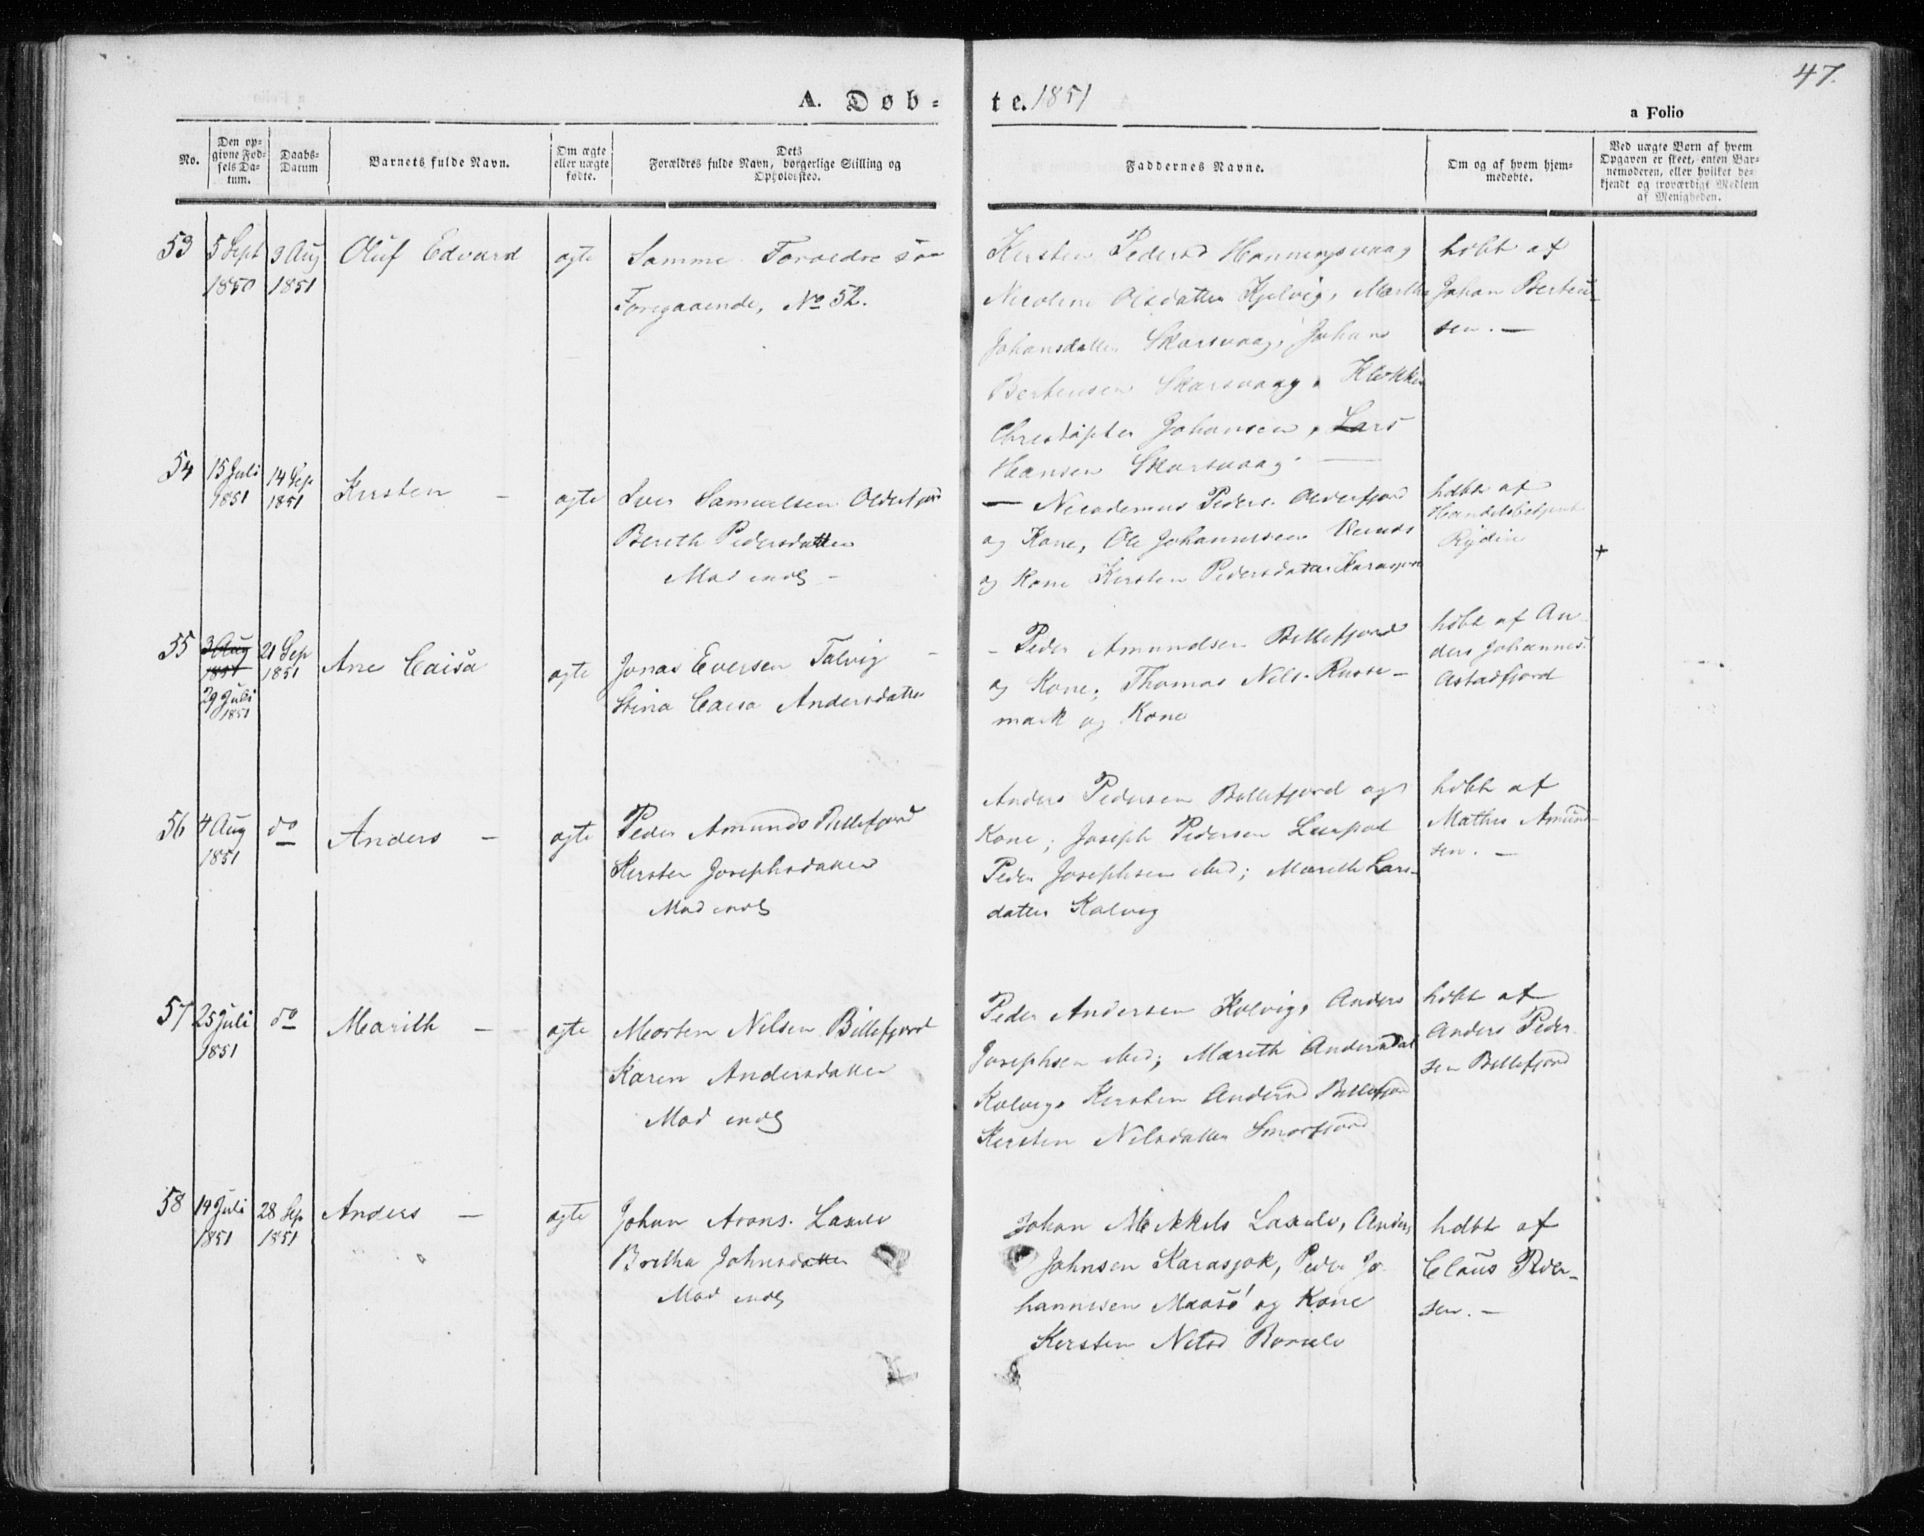 47.
A. Døb-
te. 1851
a Folio
No.
Den op-
givne Fød-
sels Da-
tum.
Daabs-
Datum
Barnets fulde Navn.
Om ægte
eller uægte
fødte.
Dets
Forældres fulde Navn, borgerlige Stilling og
Opholdssted.
Faddernes Navne.
Om og af hvem hjem-
medøbte.
Ved uægte Børn af hvem
Opgaven er skeet, enten Bar-
nemoderen, eller hvilket be-
kjendt og troværdigt Medlem
af Menigheden.
53
5 Sept
1850
3 Aug
1851
Oluf Edvard
ægte
Samme Foreldre som
Foregaaende, No 52.
Kirsten Pedersd Honningsvaag
Nicoline Olsdatter Kjelvig, Marthe
Johansdatter Skarsvaag, Johan
Bertensen Skarsvaag, Klokker
Christopher Johansen, Lars
Hansen Skarsvaag. —
hdbt af
Johan Berten-
sen. —
54
15 Juli
1851
14 Sep
1851
Kirsten —
ægte
Iver Samuelsen Olderfjord
Bereth Pedersdatter
Mad indl —
— Nicodemus Peders. Olderfjord
og Kone, Ole Johannessen
og Kone Kirsten Pedersdatter Karasjok
hdbt af
Handelsbetjent
Rydin
+
55
3 Aug
1851
29 Juli
1851
21 Sep
1851
Ane Caisa
ægte
Jonas Eversen Talvig —
Stina Caisa Andersdatter
- Peder Amundsen Billefjord
og Kone; Thomas Nils. Russe-
mark og Kone
hdbt af An-
ders Johannes.
56
4 Aug
1851
do
Anders —
ægte
Peder Amunds Billefjord
Kirsten Josephsdatter
Mad indl
Anders Pedersen Billefjord og
Kone; Joseph Pedersen
Peder Josephsen ibid; Marith Lars-
datter Kolvig
hdbt af
Mathis Amund-
sen. —
57
25 Juli
1851
do
Marith —
ægte
Morten Nilsen Billefjord
Karen Andersdatter
Mad indl
Peder Andersen Kolvig, Anders
Josephsen ibid; Mareth Andersdat
Kolvig, Kirsten Andersd Billefjord
Kirsten Nilsdatter Smørfjord
hdbt af
Anders Peder-
sen Billefjord
58
14 Juli
1851
28 Sep
1851
Anders —
ægte
Johan Arons. Laxelv
Bretha Johnsdatter
Mad indl
Johan Mikkels Laxelv, Anders
Johnsen Karasjok, Peder Jo-
hannesen Maasø og Kone
Kirsten Nilsd Børselv
hdbt af
Claus Peder-
sen. —